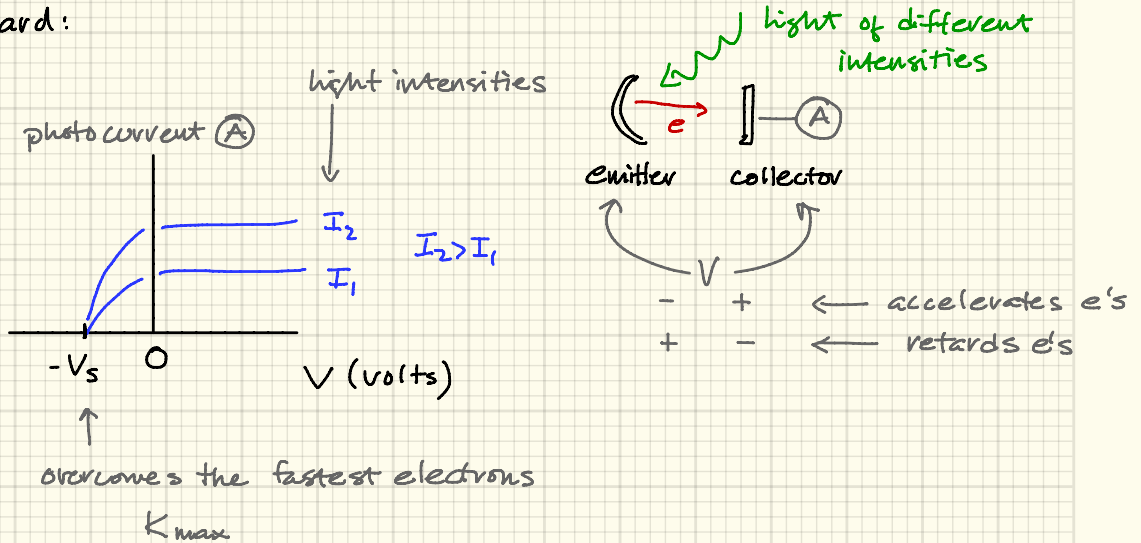 ard:
light intensities
photocurrent A
I₂
I₁
I₂ > I₁
-Vs
0
V (volts)
overcomes the fastest electrons
Kmax
light of different
intensities
e
A
emitter
collector
V
- + ← accelerates e's
+ - ← retards e's